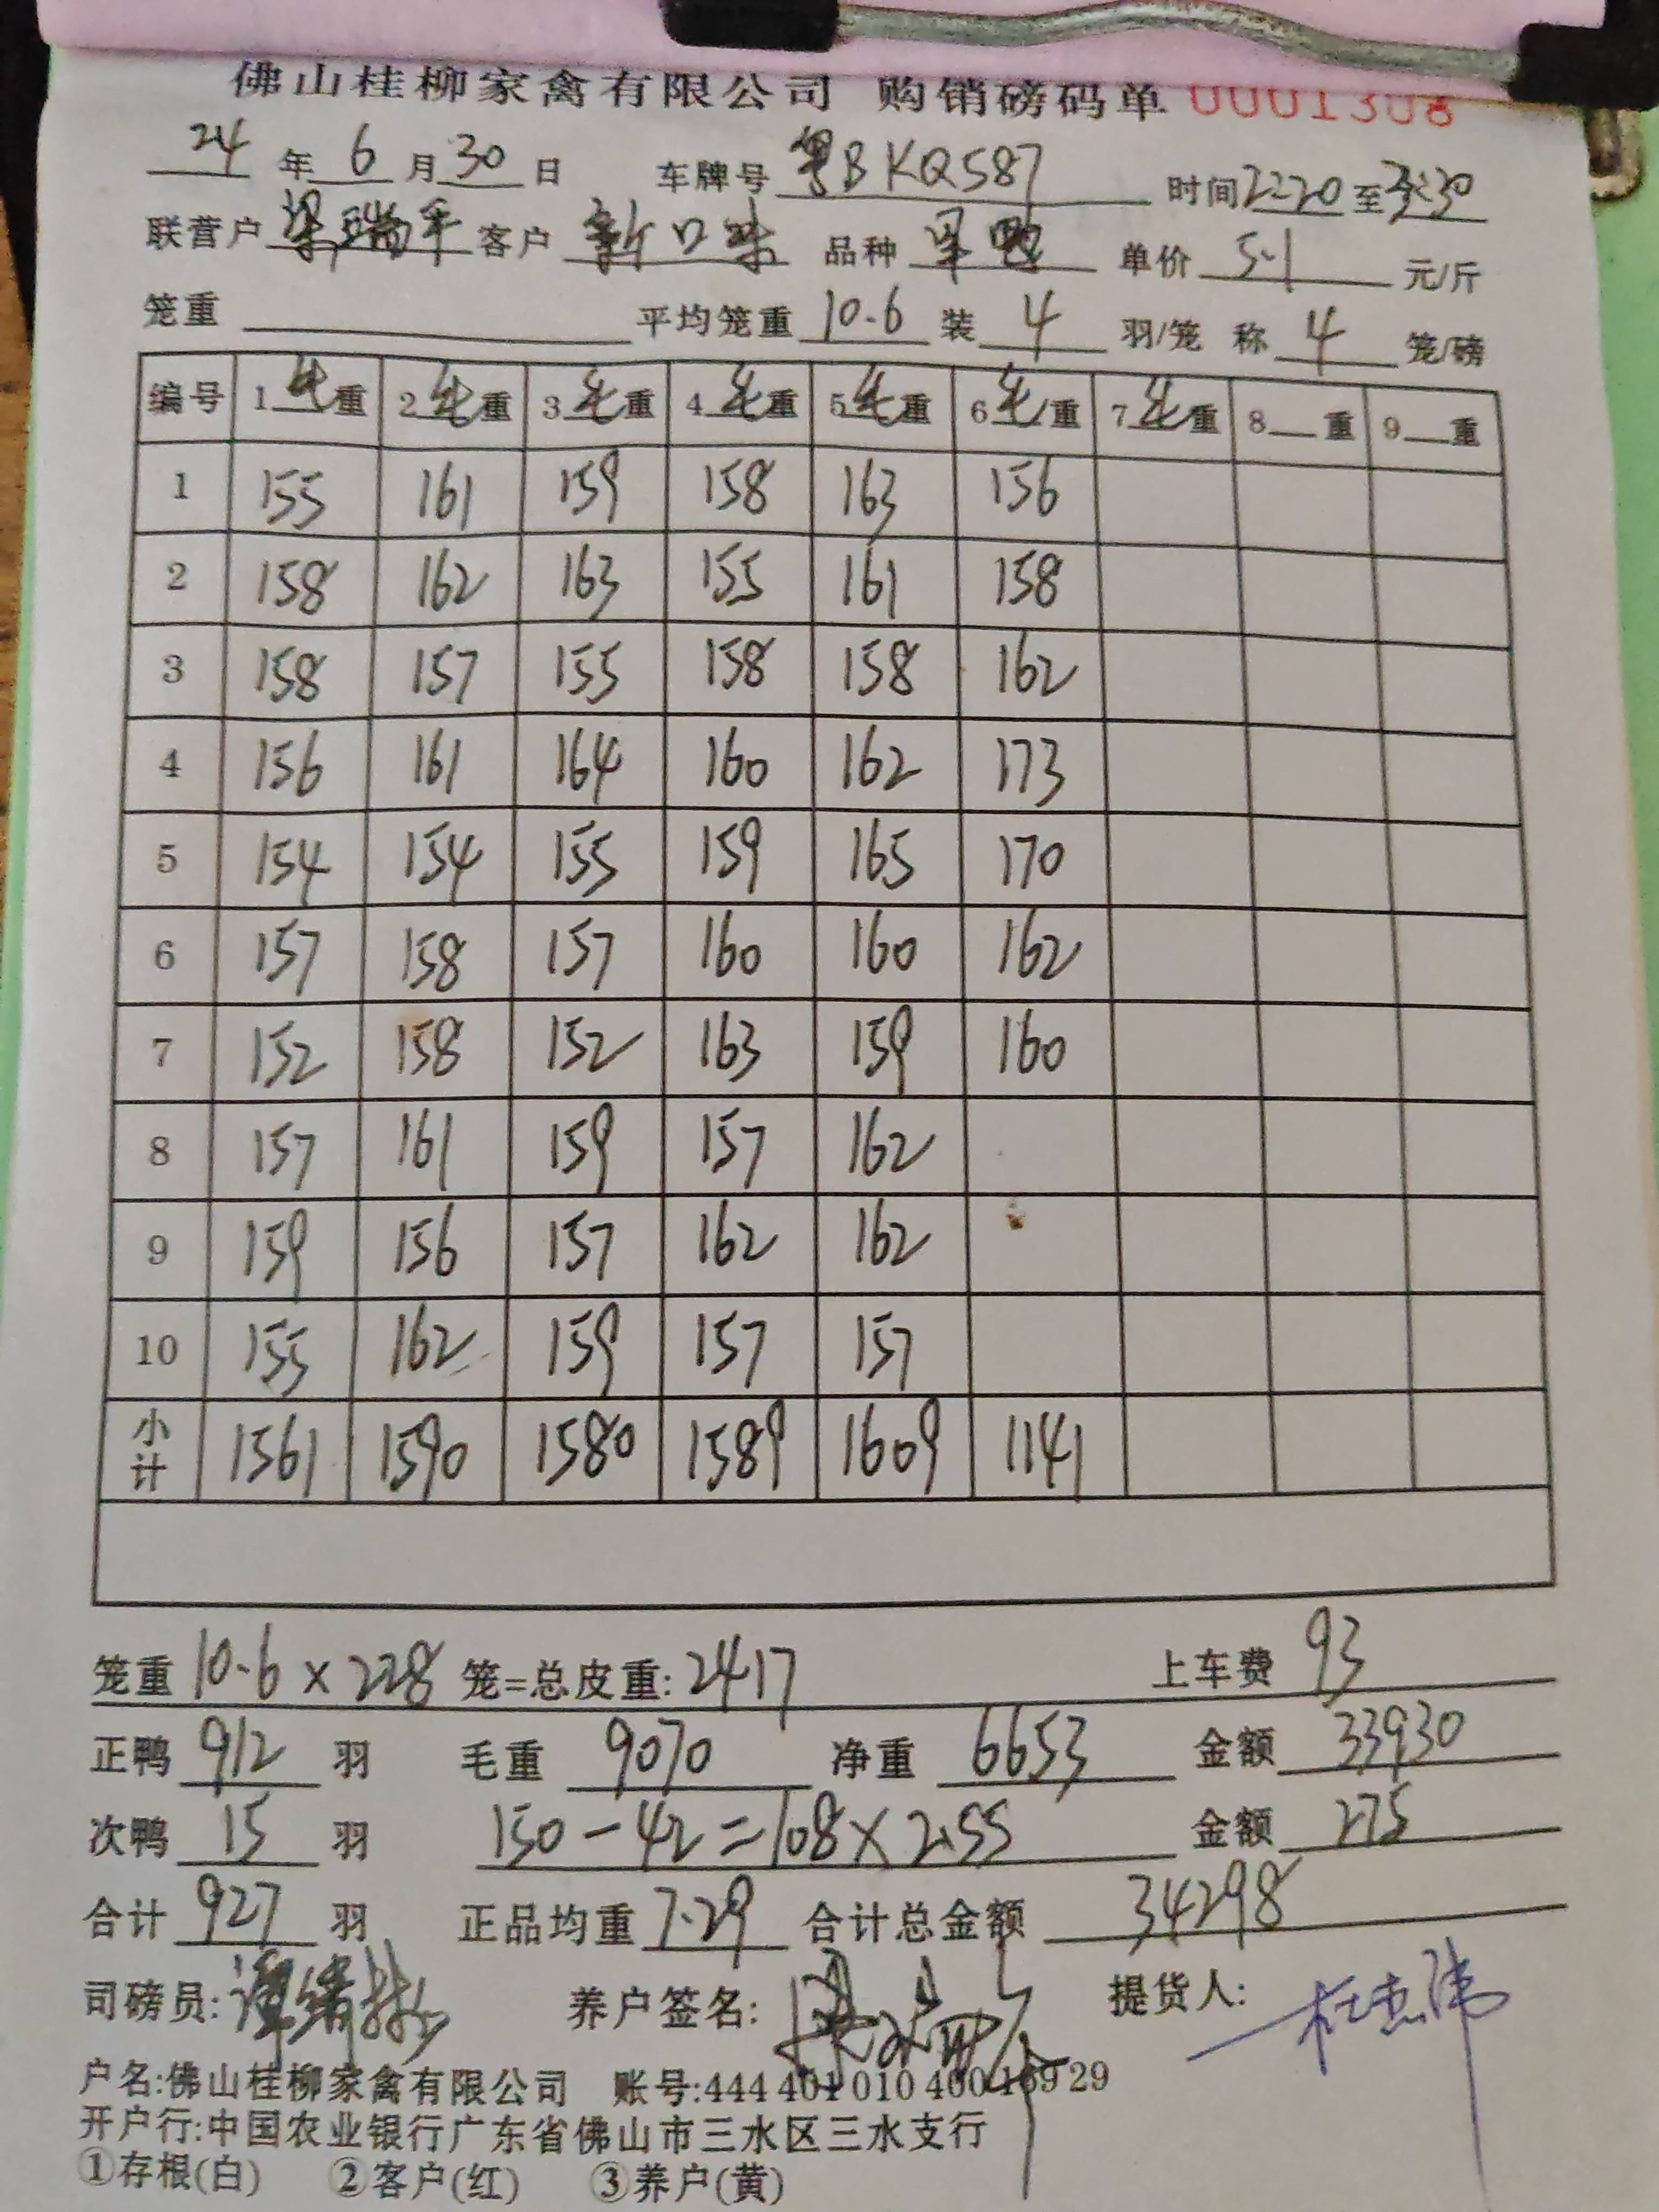 佛山桂柳家禽有限公司 购销磅码单 0001308
24 年 6 月 30 日 车牌号 粤BKQ587 时间 22:20 至 3:30
联营户 梁瑞平 客户 新口味 品种 单价 5.1 元/斤
笼重 平均笼重 10.6 装 4 羽/笼 称 4 笼/磅
编号 1 毛重 2 毛重 3 毛重 4 毛重 5 毛重 6 毛重 7 毛重 8 重 9 重
1 155 161 159 158 163 156
2 158 162 163 155 161 158
3 158 157 155 158 158 162
4 156 161 164 160 162 173
5 154 154 155 159 165 170
6 157 158 157 160 160 162
7 152 158 152 163 159 160
8 157 161 159 157 162
9 159 156 157 162 162
10 155 162 159 157 157
小计 1561 1590 1580 1589 1609 1141
笼重 10.6 × 228 笼=总皮重: 2417 上车费 93
正鸭 912 羽 毛重 9070 净重 6653 金额 33930
次鸭 15 羽 150-42=108×2.55 金额 275
合计 927 羽 正品均重 7.29 合计总金额 34298
司磅员: 养户签名: 提货人: 杜杰伟
户名:佛山桂柳家禽有限公司 账号:444 401 010 400 169 29
开户行:中国农业银行广东省佛山市三水区三水支行
①存根(白) ②客户(红) ③养户(黄)